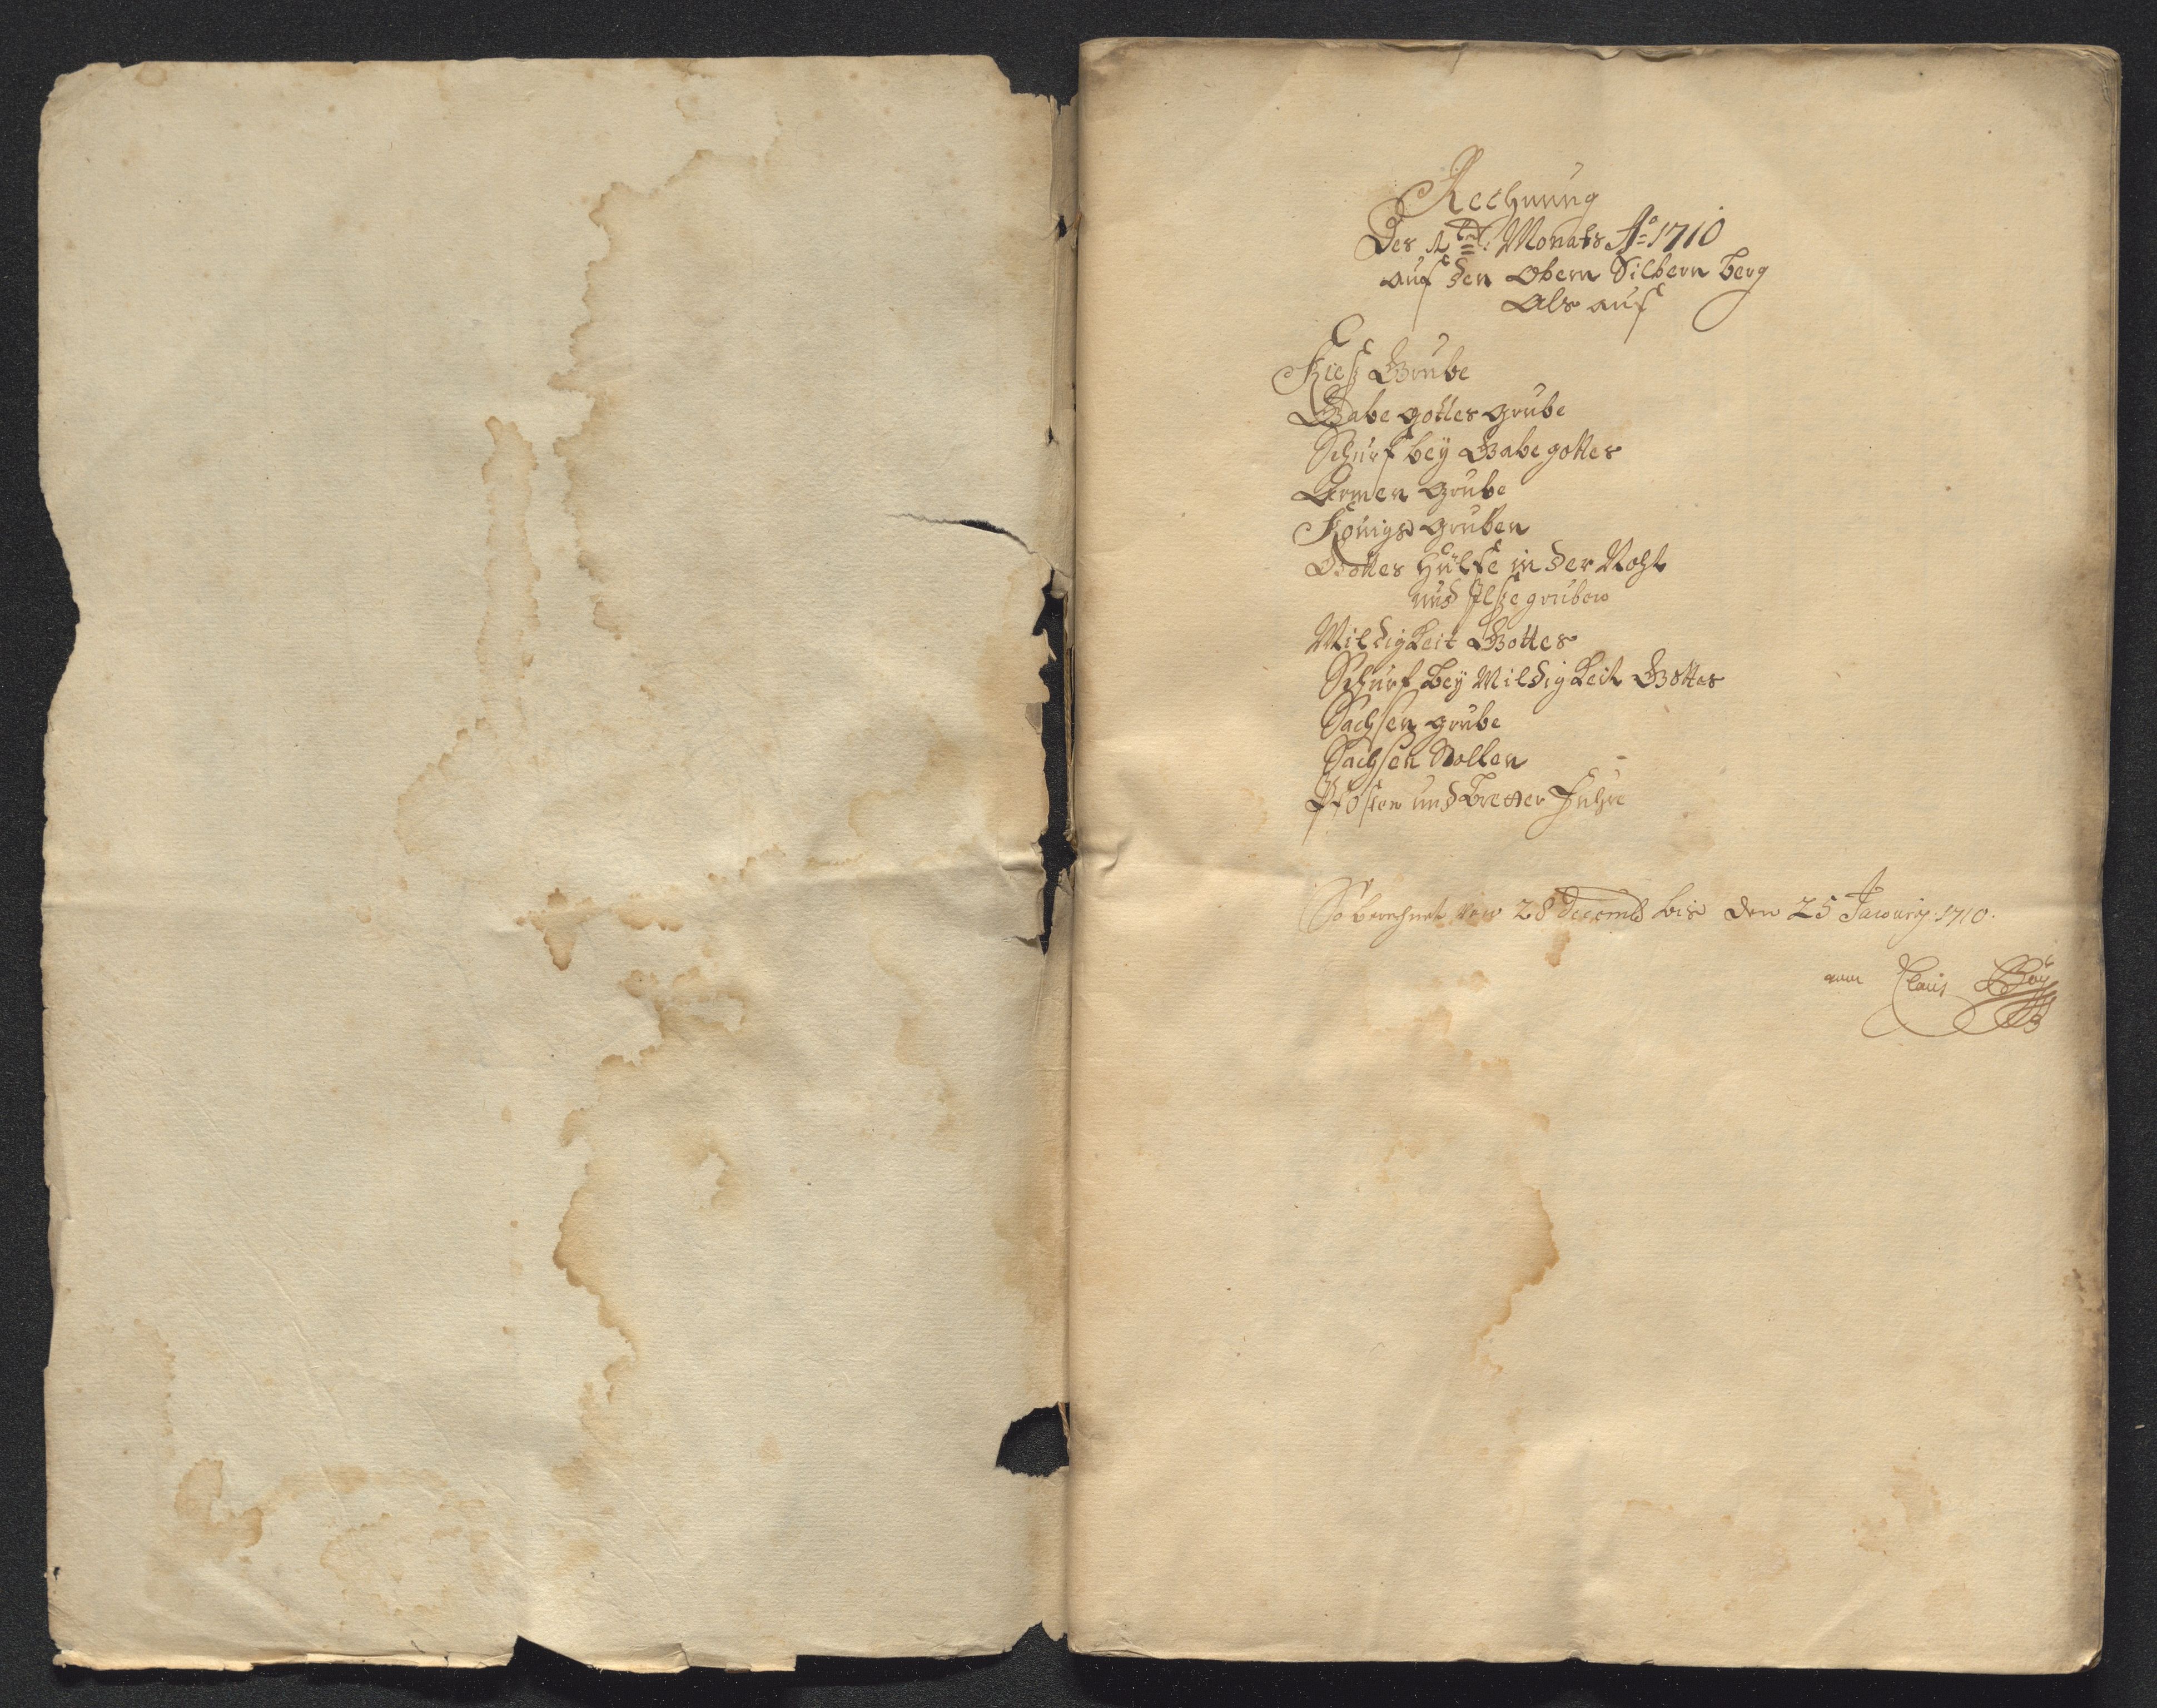 Rechnung
Des 1ten Monats Ao 1710
auf den Obern Silbern berg
Als auf
Kieß Grube
Gabe gottes grube
Schurf bey Gabe gottes
Armen grube
Königs gruben
Gottes Hülfe in der Noht
und Ilße gruben
Mildigkeit Gottes
Schurf bey Mildigkeit Gottes
Sachsen grube
Sachsen Stollen
Pfosten und Bretter Fuhre
So berechnet von 28 Decemb bis den 25 January 1710.
Claus